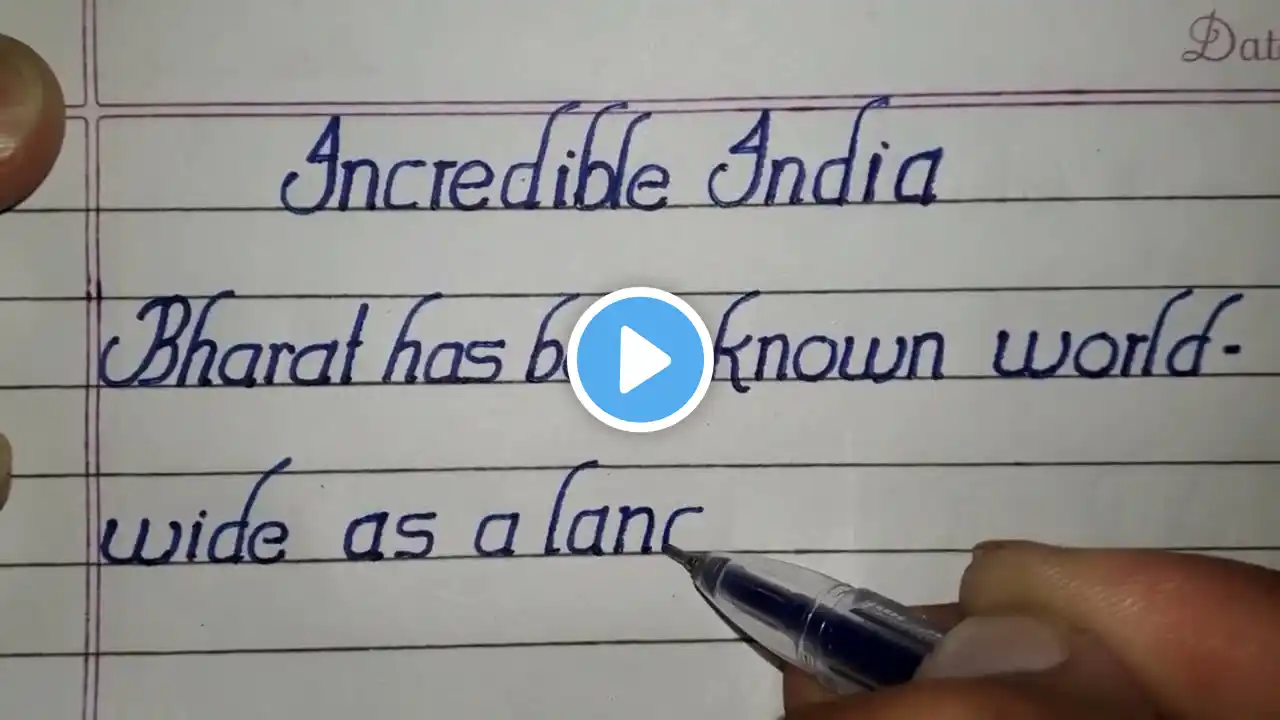 Dat
Incredible India
Bharat has b known world-
wide as a lanc